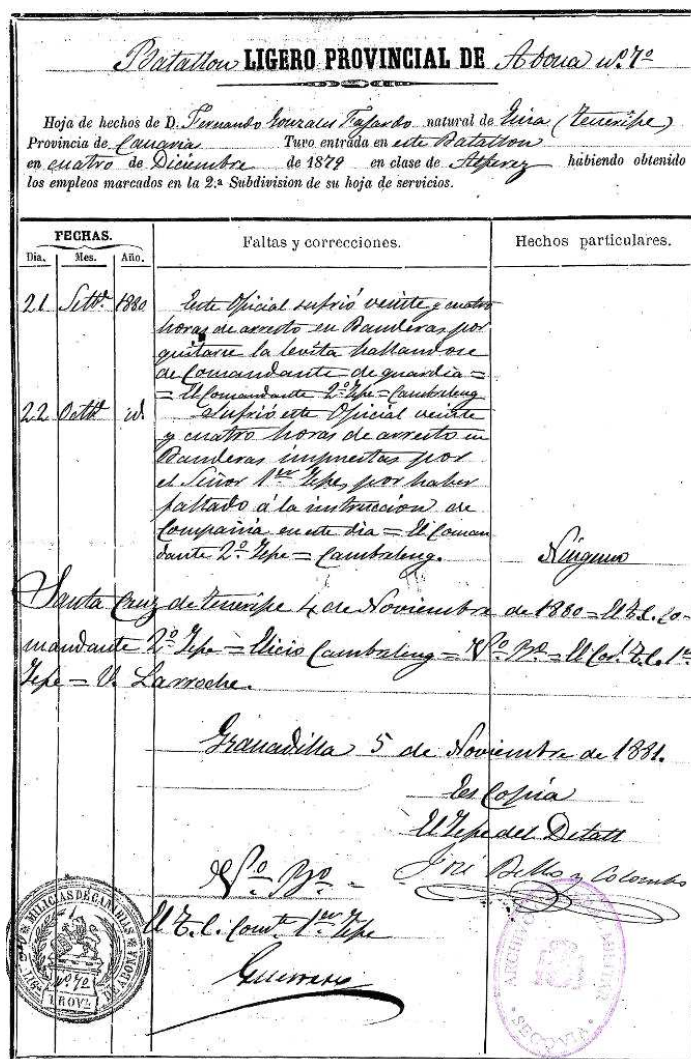 Batallon LIGERO PROVINCIAL DE Abona nº. 7º
Hoja de hechos de D. Fernando Gonzales Fajardo natural de (Tenerife)
Provincia de Canaria Tuvo entrada en este Batallon
en cuatro de Diciembre de 1879 en clase de Alferez habiendo obtenido
los empleos marcados en la 2.ª Subdivision de su hoja de servicios.
FECHAS. Faltas y correcciones. Hechos particulares.
Dia. Mes. Año.
21 Setbe. 1880 Este Oficial sufrió veinte y cuatro
horas de arresto en Banderas por
quitarse la levita hallandose
de Comandante de guardia =
= El Comandante 2º Gefe = Cambreleng
22 Octbe. id. Sufrió este Oficial veinte
y cuatro horas de arresto en
Banderas impuestas por
el Señor 1er Gefe, por haber
faltado á la instruccion de
Compañia en este dia = El Coman
dante 2º Gefe = Cambreleng. Ninguno
Santa Cruz de Tenerife 4 de Noviembre de 1880 = El T.C. Co-
mandante 2º Gefe = Elicio Cambreleng = Vº Bº = El Cor. T.C. 1er
Gefe = V. Larroche.
Granadilla 5 de Noviembre de 1881.
Es Copia
El Gefe del Detall
José Bello y Colombo
Vº Bº
El T.C. Comte. 1er Gefe
Guerrero
MILICIAS DE CANARIAS
DE ABONA
Nº 7º
ARCHIVO MILITAR
SEGOVIA